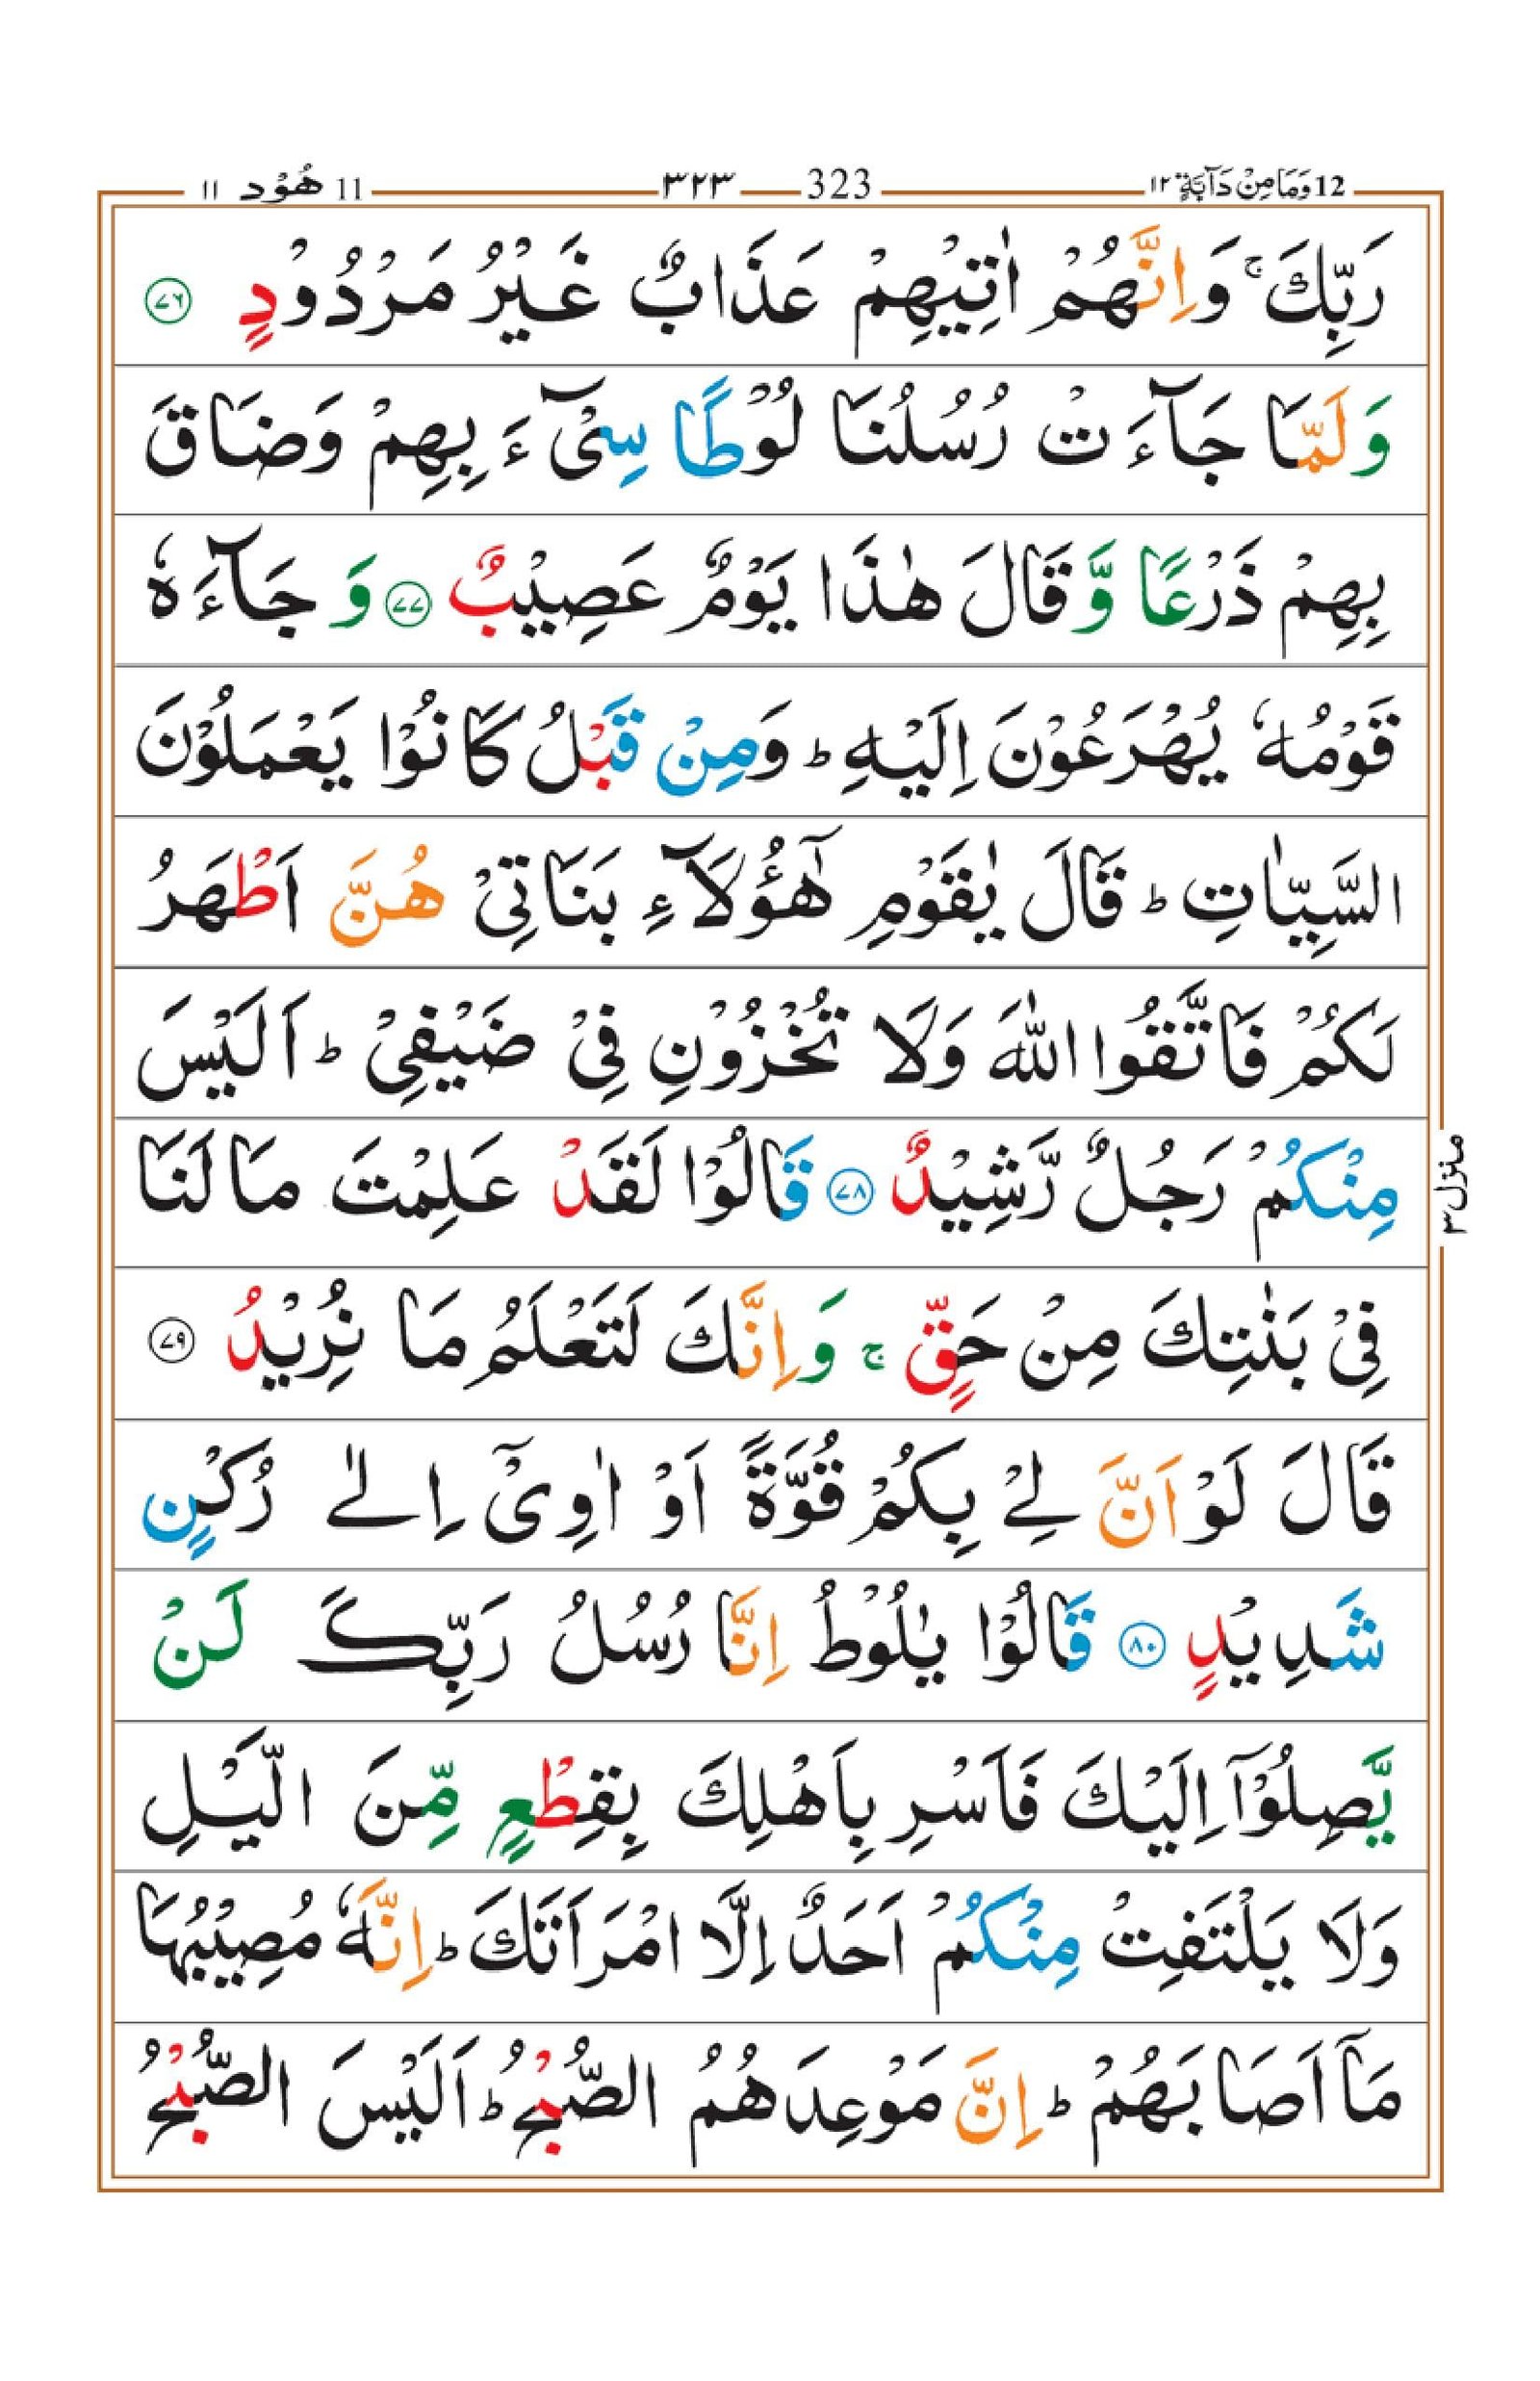 12 وَمَا مِنْ دَآبَّةٍ ١٢ 323 ٣٢٣ 11 هُوْد ١١
رَبِّكَ ۚ وَاِنَّهُمْ اٰتِيْهِمْ عَذَابٌ غَيْرُ مَرْدُوْدٍ ٧٦
وَلَمَّا جَآءَتْ رُسُلُنَا لُوْطًا سِیْٓءَ بِهِمْ وَضَاقَ
بِهِمْ ذَرْعًا وَّقَالَ هٰذَا يَوْمٌ عَصِيْبٌ ٧٧ وَجَآءَهٗ
قَوْمُهٗ يُهْرَعُوْنَ اِلَيْهِ ؕ وَمِنْ قَبْلُ كَانُوْا يَعْمَلُوْنَ
السَّيِّاٰتِ ؕ قَالَ يٰقَوْمِ هٰٓؤُلَآءِ بَنَاتِیْ هُنَّ اَطْهَرُ
لَكُمْ فَاتَّقُوا اللّٰهَ وَلَا تُخْزُوْنِ فِیْ ضَيْفِیْ ؕ اَلَيْسَ
مِنْكُمْ رَجُلٌ رَّشِيْدٌ ٧٨ قَالُوْا لَقَدْ عَلِمْتَ مَا لَنَا
فِیْ بَنٰتِكَ مِنْ حَقٍّ ۚ وَاِنَّكَ لَتَعْلَمُ مَا نُرِيْدُ ٧٩
قَالَ لَوْ اَنَّ لِیْ بِكُمْ قُوَّةً اَوْ اٰوِیْٓ اِلٰى رُكْنٍ
شَدِيْدٍ ٨٠ قَالُوْا يٰلُوْطُ اِنَّا رُسُلُ رَبِّكَ لَنْ
يَّصِلُوْٓا اِلَيْكَ فَاَسْرِ بِاَهْلِكَ بِقِطْعٍ مِّنَ الَّيْلِ
وَلَا يَلْتَفِتْ مِنْكُمْ اَحَدٌ اِلَّا امْرَاَتَكَ ؕ اِنَّهٗ مُصِيْبُهَا
مَآ اَصَابَهُمْ ؕ اِنَّ مَوْعِدَهُمُ الصُّبْحُ ؕ اَلَيْسَ الصُّبْحُ
منزل ٣